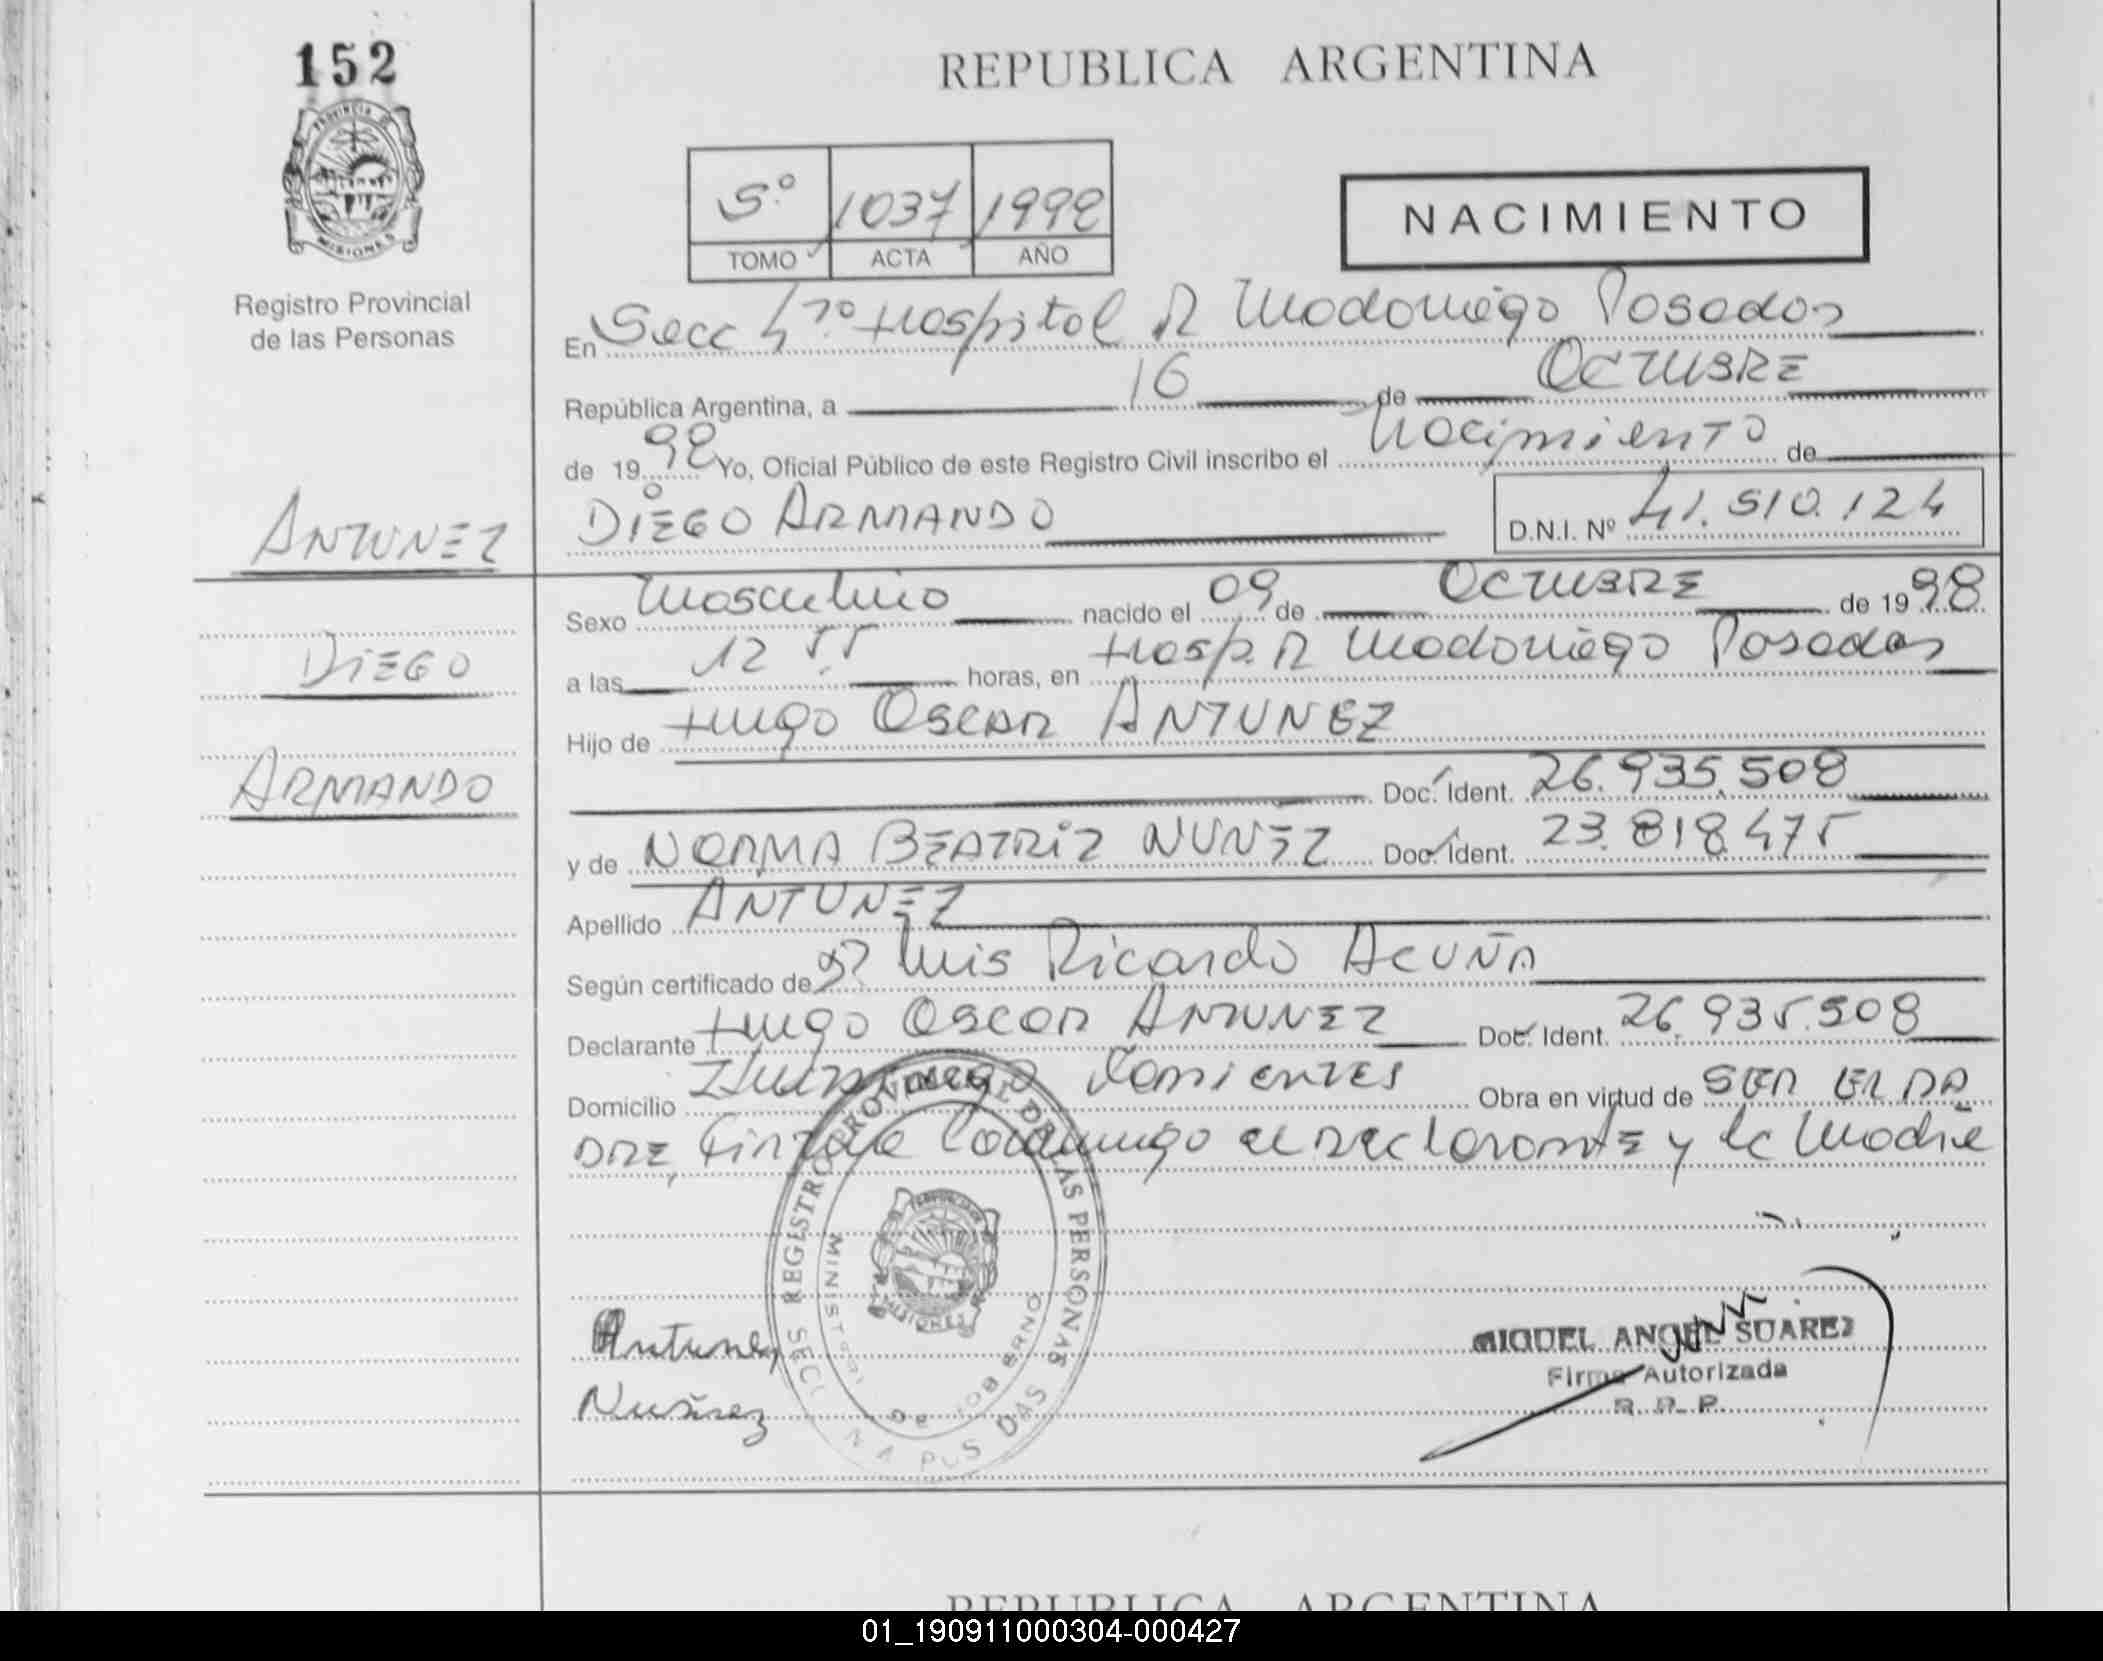 152
REPUBLICA ARGENTINA
PROVINCIA DE
MISIONES
Registro Provincial
de las Personas
5º 1037 1998
TOMO ACTA AÑO
NACIMIENTO
En Secc 4ª Hospital R Madariaga Posadas
República Argentina, a 16 de OCTUBRE
de 1998 Yo, Oficial Público de este Registro Civil inscribo el Nacimiento de
ANTUNEZ
DIEGO ARMANDO D.N.I. Nº 41.510.124
Sexo Masculino nacido el 09 de OCTUBRE de 1998
DIEGO
a las 12 55 horas, en Hosp. R Madariaga Posadas
Hijo de Hugo Oscar ANTUNEZ
ARMANDO
Doc. Ident. 26.935.508
y de NORMA BEATRIZ NUNEZ Doc. Ident. 23.818.475
Apellido ANTUNEZ
Según certificado de Dr Luis Ricardo Acuña
Declarante Hugo Oscar ANTUNEZ Doc. Ident. 26.935.508
Domicilio Corrientes Obra en virtud de SER EL PA
DRE, Firma Conmigo el DECLARANTE y la Madre
REGISTRO PROVINCIAL DE LAS PERSONAS
MINISTERI DE GOBIERNO
MISIONES
Antunez
MIGUEL ANGEL SUAREZ
Firma Autorizada
R. P. P.
Nuñez
REPUBLICA ARGENTINA
01_190911000304-000427